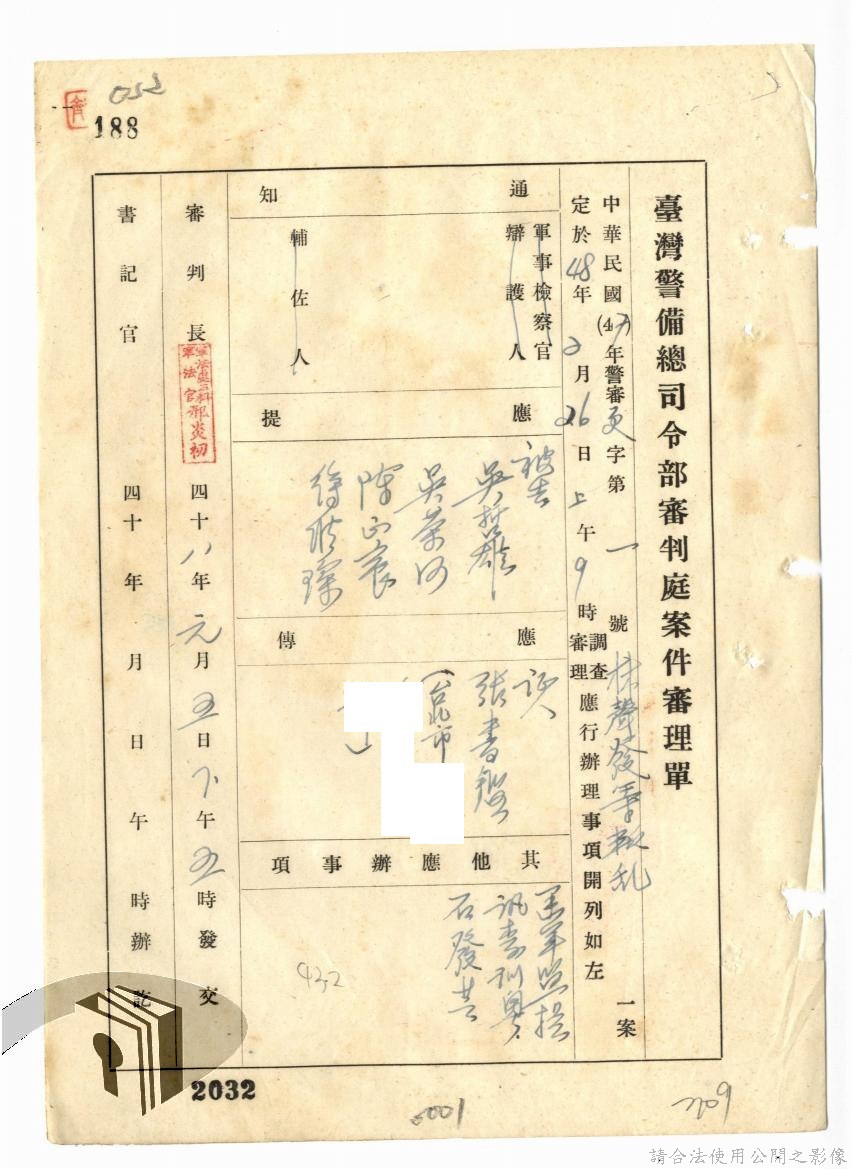 052
188
臺灣警備總司令部審判庭案件審理單
中華民國(47)年警審更字第一號林聲發等叛乱一案
定於48年2月26日上午9時調查審理應行辦理事項開列如左
通知
軍事檢察官
辯護人
輔佐人
應提
被告
吳哲雄
吳榮
陳正宸
應傳
证人
張書
(台北市
)
其他應辦事項
訊李訓
石發其
432
審判長
軍法處
軍法官邢炎初
四十八年元月五日下午五時發交
書記官
四十年月日午時辦訖
2032
0001
209
請合法使用公開之影像